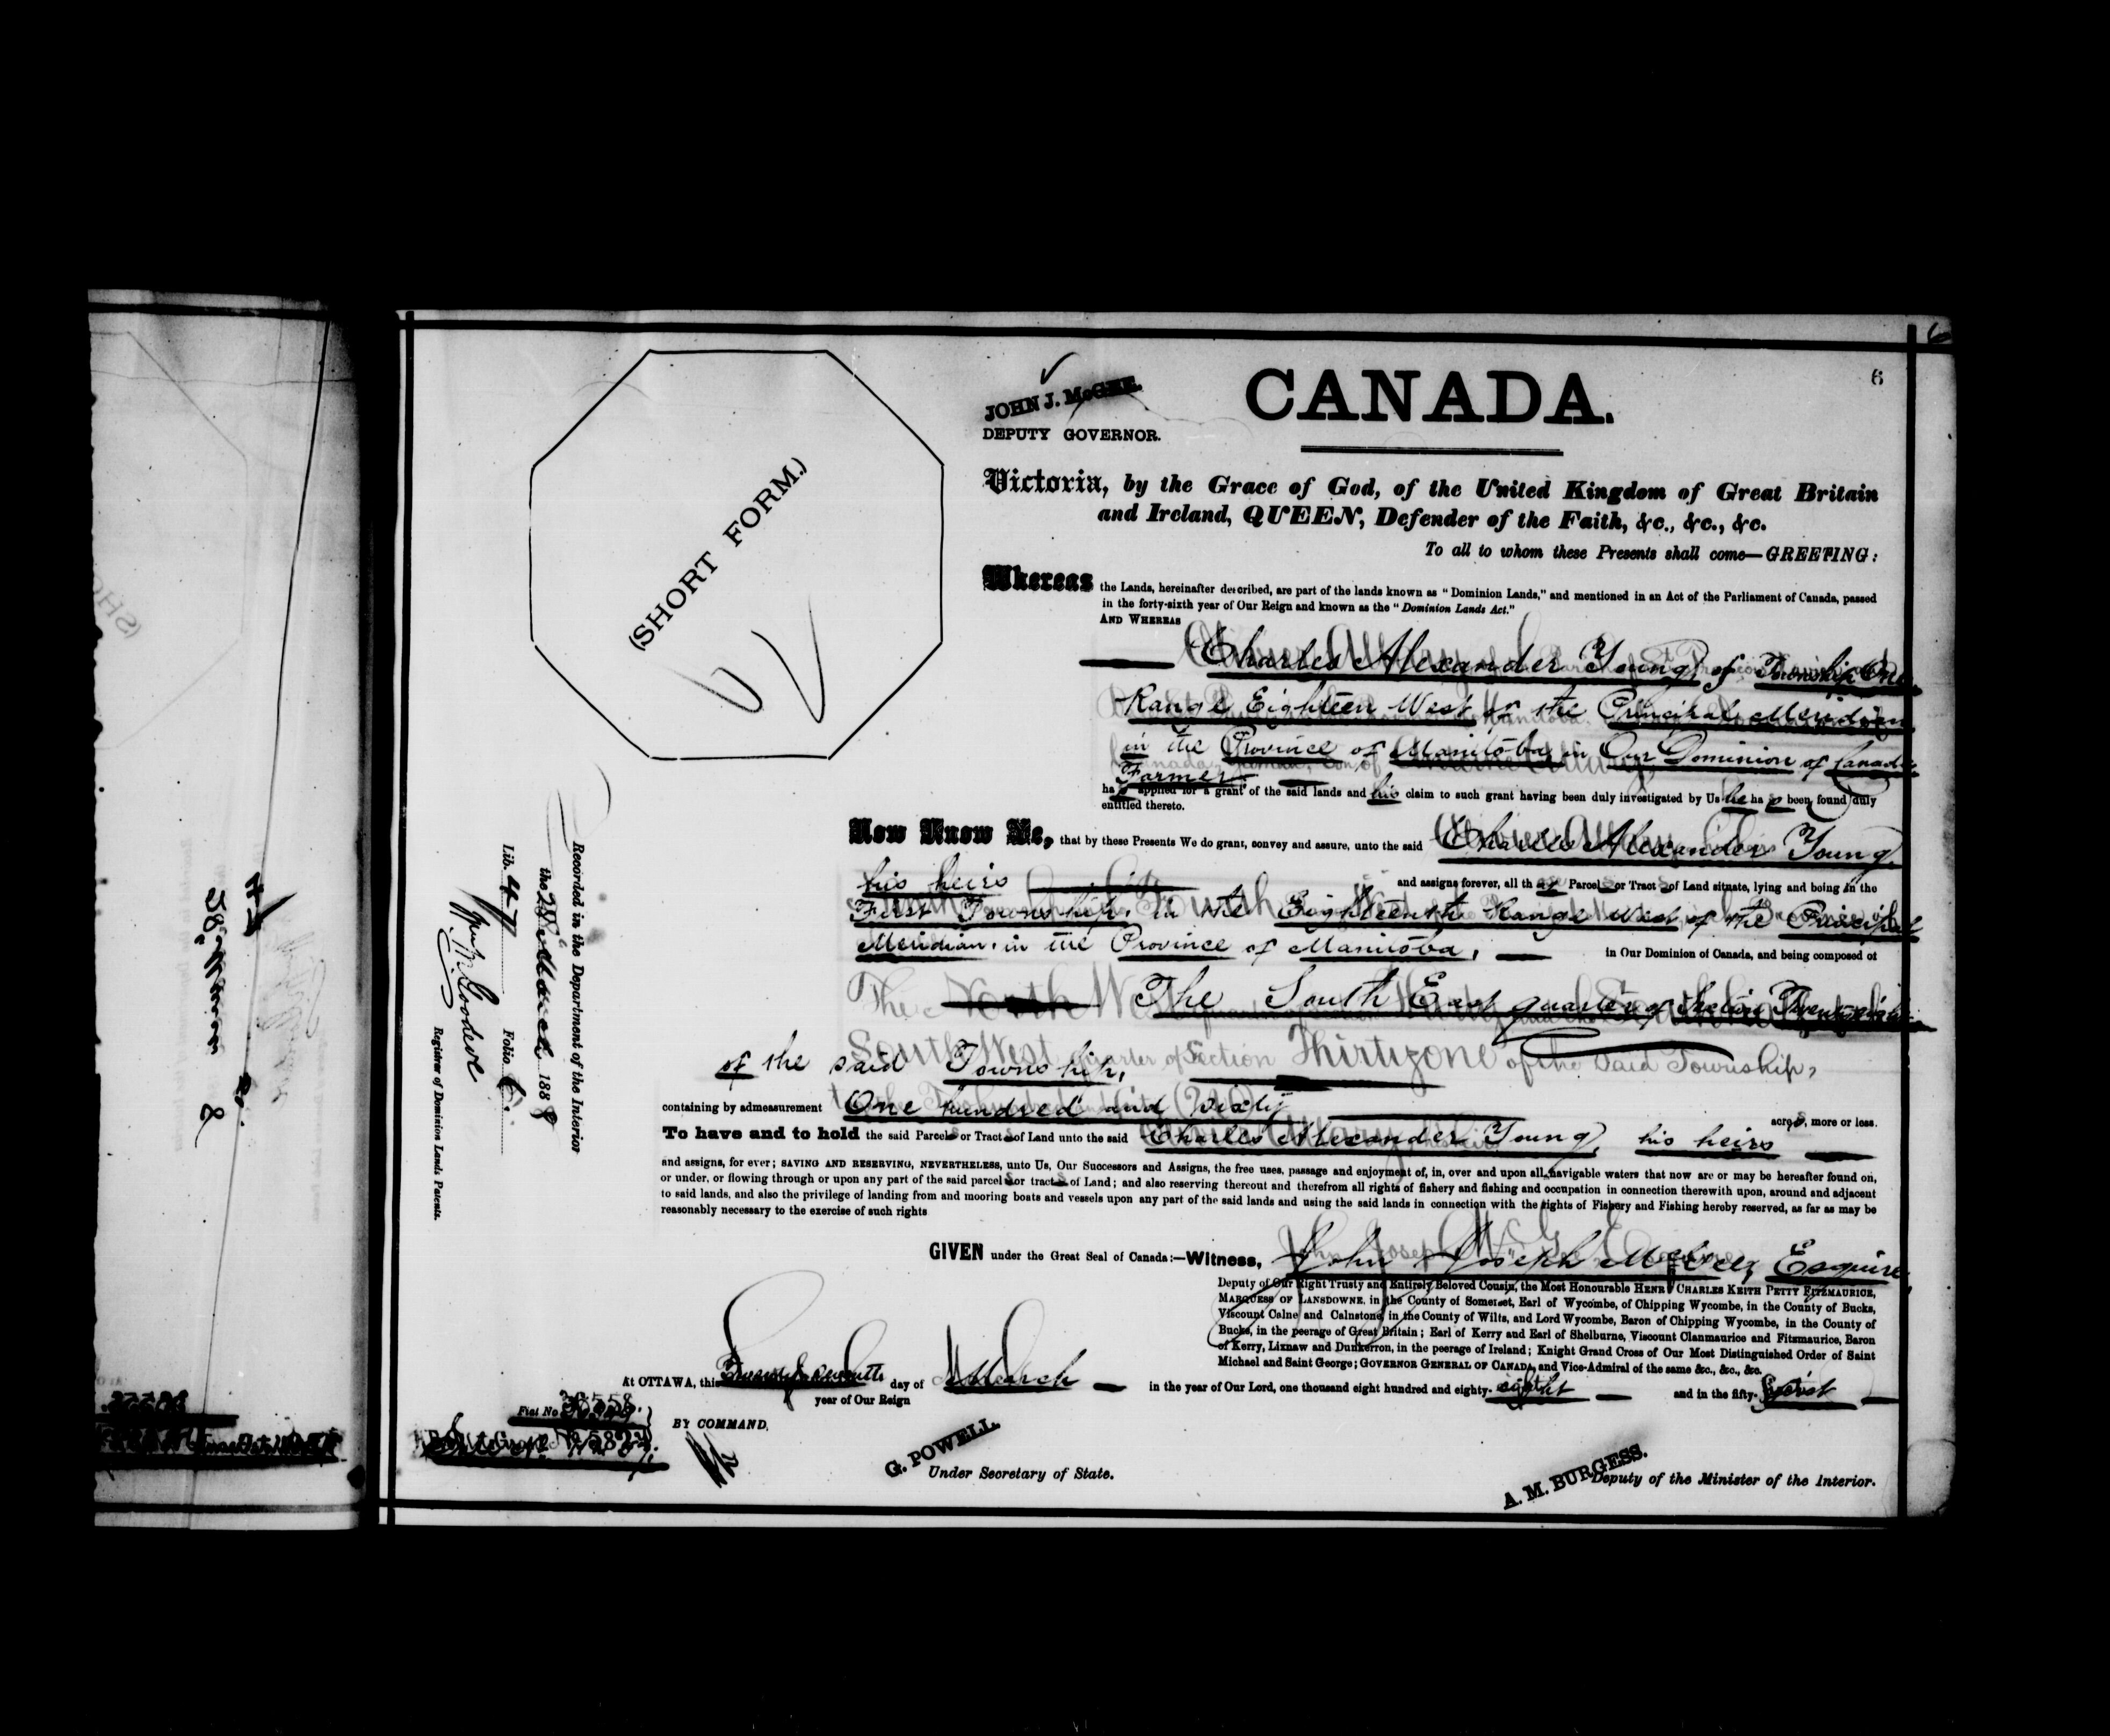 6
JOHN J. McGEE.
DEPUTY GOVERNOR.
CANADA.
(SHORT FORM.)
Victoria, by the Grace of God, of the United Kingdom of Great Britain
and Ireland, QUEEN, Defender of the Faith, &c., &c., &c.
To all to whom these Presents shall come—GREETING:
Whereas the Lands, hereinafter described, are part of the lands known as "Dominion Lands," and mentioned in an Act of the Parliament of Canada, passed
in the forty-sixth year of Our Reign and known as the "Dominion Lands Act."
AND WHEREAS
Charles Alexander Young, of Township One
Range Eighteen West of the Principal Meridian
in the Province of Manitoba in Our Dominion of Canada
Farmer
has applied for a grant of the said lands and his claim to such grant having been duly investigated by Us he has been found duly
entitled thereto.
Now Know Ye, that by these Presents We do grant, convey and assure, unto the said Charles Alexander Young,
his heirs and assigns forever, all th Parcel or Tract of Land situate, lying and being in the
First Township, in the Eighteenth Range West of the Principal
Meridian, in the Province of Manitoba, in Our Dominion of Canada, and being composed of
The South East quarter of Section Twenty eight
of the said Township,
South West quarter of Section Thirty one of the Said Township,
containing by admeasurement One hundred and sixty acres, more or less.
To have and to hold the said Parcel or Tract of Land unto the said Charles Alexander Young, his heirs
and assigns, for ever; SAVING AND RESERVING, NEVERTHELESS, unto Us, Our Successors and Assigns, the free uses, passage and enjoyment of, in, over and upon all navigable waters that now are or may be hereafter found on,
or under, or flowing through or upon any part of the said parcel or tract of Land; and also reserving thereout and therefrom all rights of fishery and fishing and occupation in connection therewith upon, around and adjacent
to said lands, and also the privilege of landing from and mooring boats and vessels upon any part of the said lands and using the said lands in connection with the rights of Fishery and Fishing hereby reserved, as far as may be
reasonably necessary to the exercise of such rights
GIVEN under the Great Seal of Canada:—Witness, John Joseph McGee, Esquire,
Deputy of Our Right Trusty and Entirely Beloved Cousin, the Most Honourable HENRY CHARLES KEITH PETTY FITZMAURICE,
MARQUESS OF LANSDOWNE, in the County of Somerset, Earl of Wycombe, of Chipping Wycombe, in the County of Bucks,
Viscount Calne and Calnstone, in the County of Wilts, and Lord Wycombe, Baron of Chipping Wycombe, in the County of
Bucks, in the peerage of Great Britain; Earl of Kerry and Earl of Shelburne, Viscount Clanmaurice and Fitzmaurice, Baron
of Kerry, Lixnaw and Dunkerron, in the peerage of Ireland; Knight Grand Cross of Our Most Distinguished Order of Saint
Michael and Saint George; GOVERNOR GENERAL OF CANADA, and Vice-Admiral of the same &c., &c., &c.
At OTTAWA, this Twenty seventh day of March in the year of Our Lord, one thousand eight hundred and eighty-eight and in the fifty-first
year of Our Reign
Fiat No
BY COMMAND,
G. POWELL.
Under Secretary of State.
A. M. BURGESS.
Deputy of the Minister of the Interior.
Recorded in the Department of the Interior
the 28 March 1888
Lib. 47 Folio 6.
Registrar of Dominion Lands Patents.